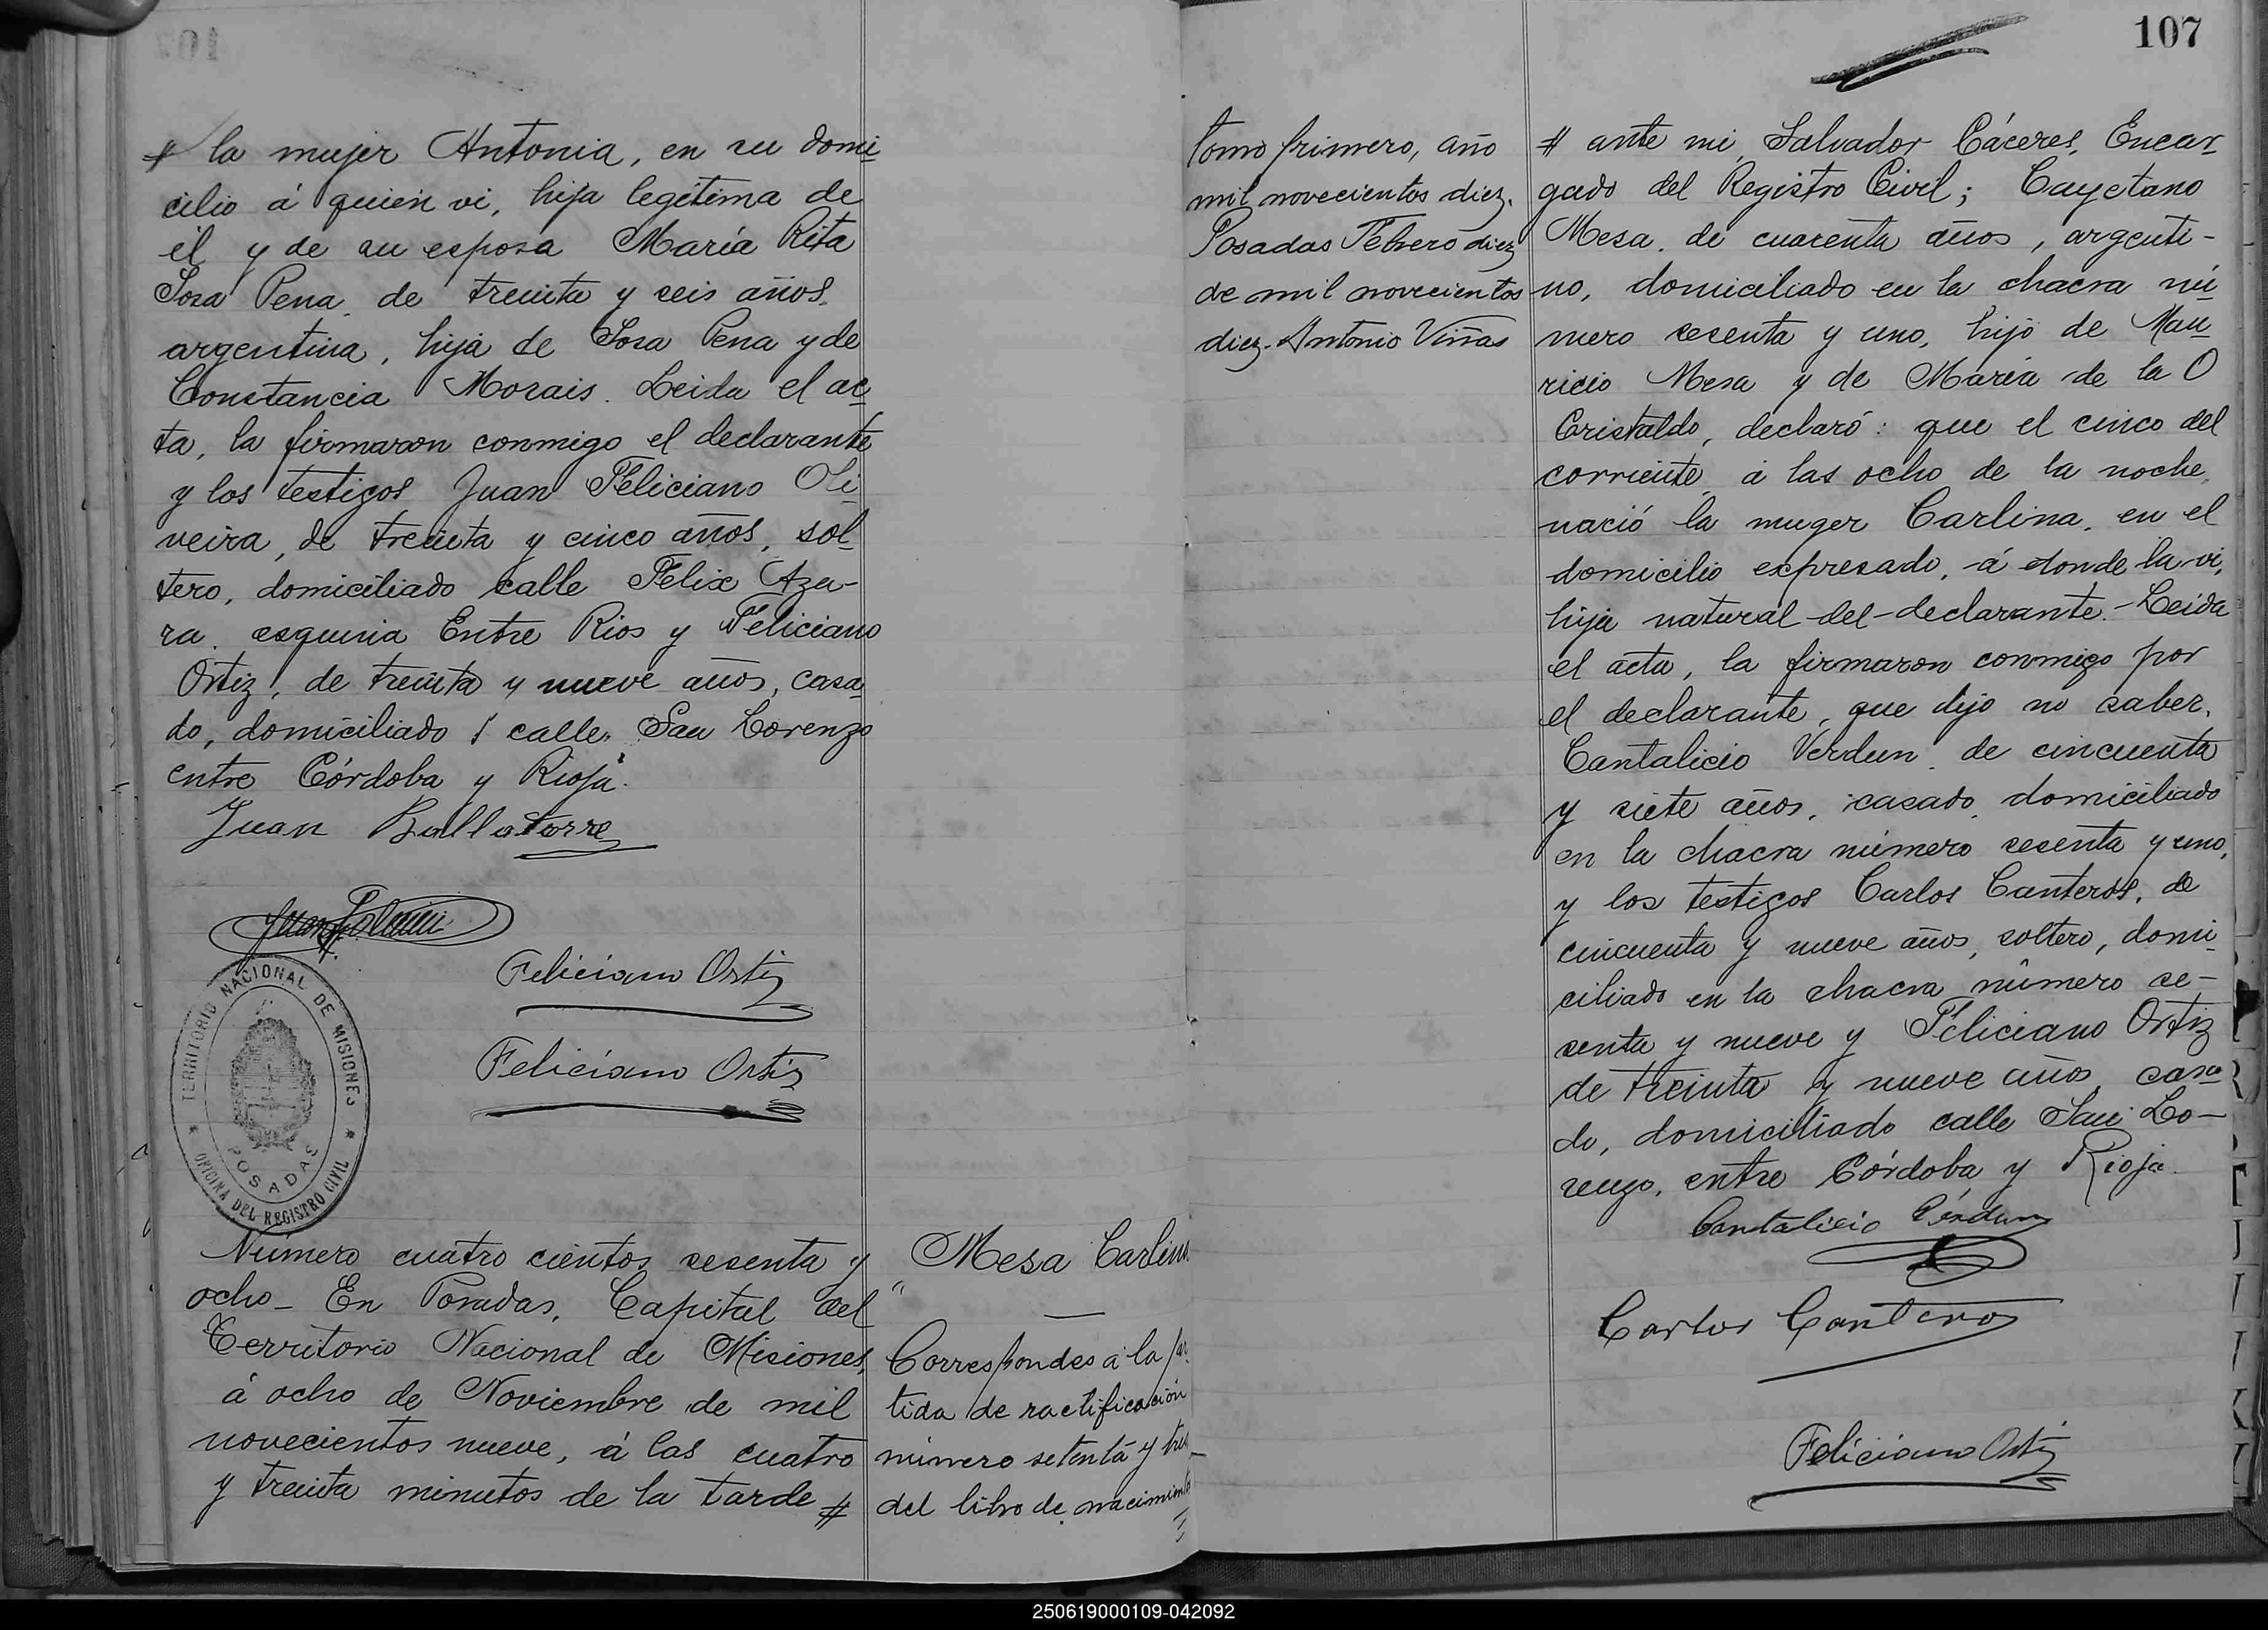 # la mujer Antonia, en su domi
cilio á quien vi, hija legítima de
él y de su esposa María Rita
Sosa Pena, de treinta y seis años,
argentina, hija de Sosa Pena y de
Constancia Morais. Leida el ac
ta, la firmaron conmigo el declarante
y los testigos Juan Feliciano Oli
veira, de treinta y cinco años, sol
tero, domiciliado calle Felix Aza-
ra, esquina Entre Rios y Feliciano
Ortiz, de treinta y nueve años, casa
do, domiciliado calle San Lorenzo
entre Córdoba y Rioja.
Juan Ballatorre
Feliciano Ortiz
Feliciano Ortiz
TERRITORIO NACIONAL DE MISIONES
POSADAS
* OFICINA DEL REGISTRO CIVIL *
Número cuatro cientos sesenta y
ocho_ En Posadas, Capital del
Territorio Nacional de Misiones,
á ocho de Noviembre de mil
novecientos nueve, á las cuatro
y treinta minutos de la tarde #
Mesa Carlina
Correspondes á la par
tida de ractificación
número setenta y tres
del libro de nacimientos
107
tomo primero, año
mil novecientos diez.
Posadas Febrero diez
de mil novecientos
diez. Antonio Viñas
# ante mi, Salvador Cáceres, Encar
gado del Registro Civil; Cayetano
Mesa, de cuarenta años, argenti-
no, domiciliado en la chacra nú
mero sesenta y uno, hijo de Mau
ricio Mesa y de María de la O
Cristaldo, declaró: que el cinco del
corriente, á las ocho de la noche,
nació la muger Carlina, en el
domicilio expresado, á donde la vi,
hija natural del declarante.- Leida
el acta, la firmaron conmigo por
el declarante, que dijo no saber,
Cantalicio Verdun, de cincuenta
y siete años, casado, domiciliado
en la chacra número sesenta y uno,
y los testigos Carlos Canteros, de
cincuenta y nueve años, soltero, domi
ciliado en la chacra número se-
senta y nueve y Feliciano Ortiz
de treinta y nueve años, casa
do, domiciliado calle San Lo-
renzo, entre Córdoba y Rioja.
Cantalicio Verdun
Carlos Canteros
Feliciano Ortiz
250619000109-042092